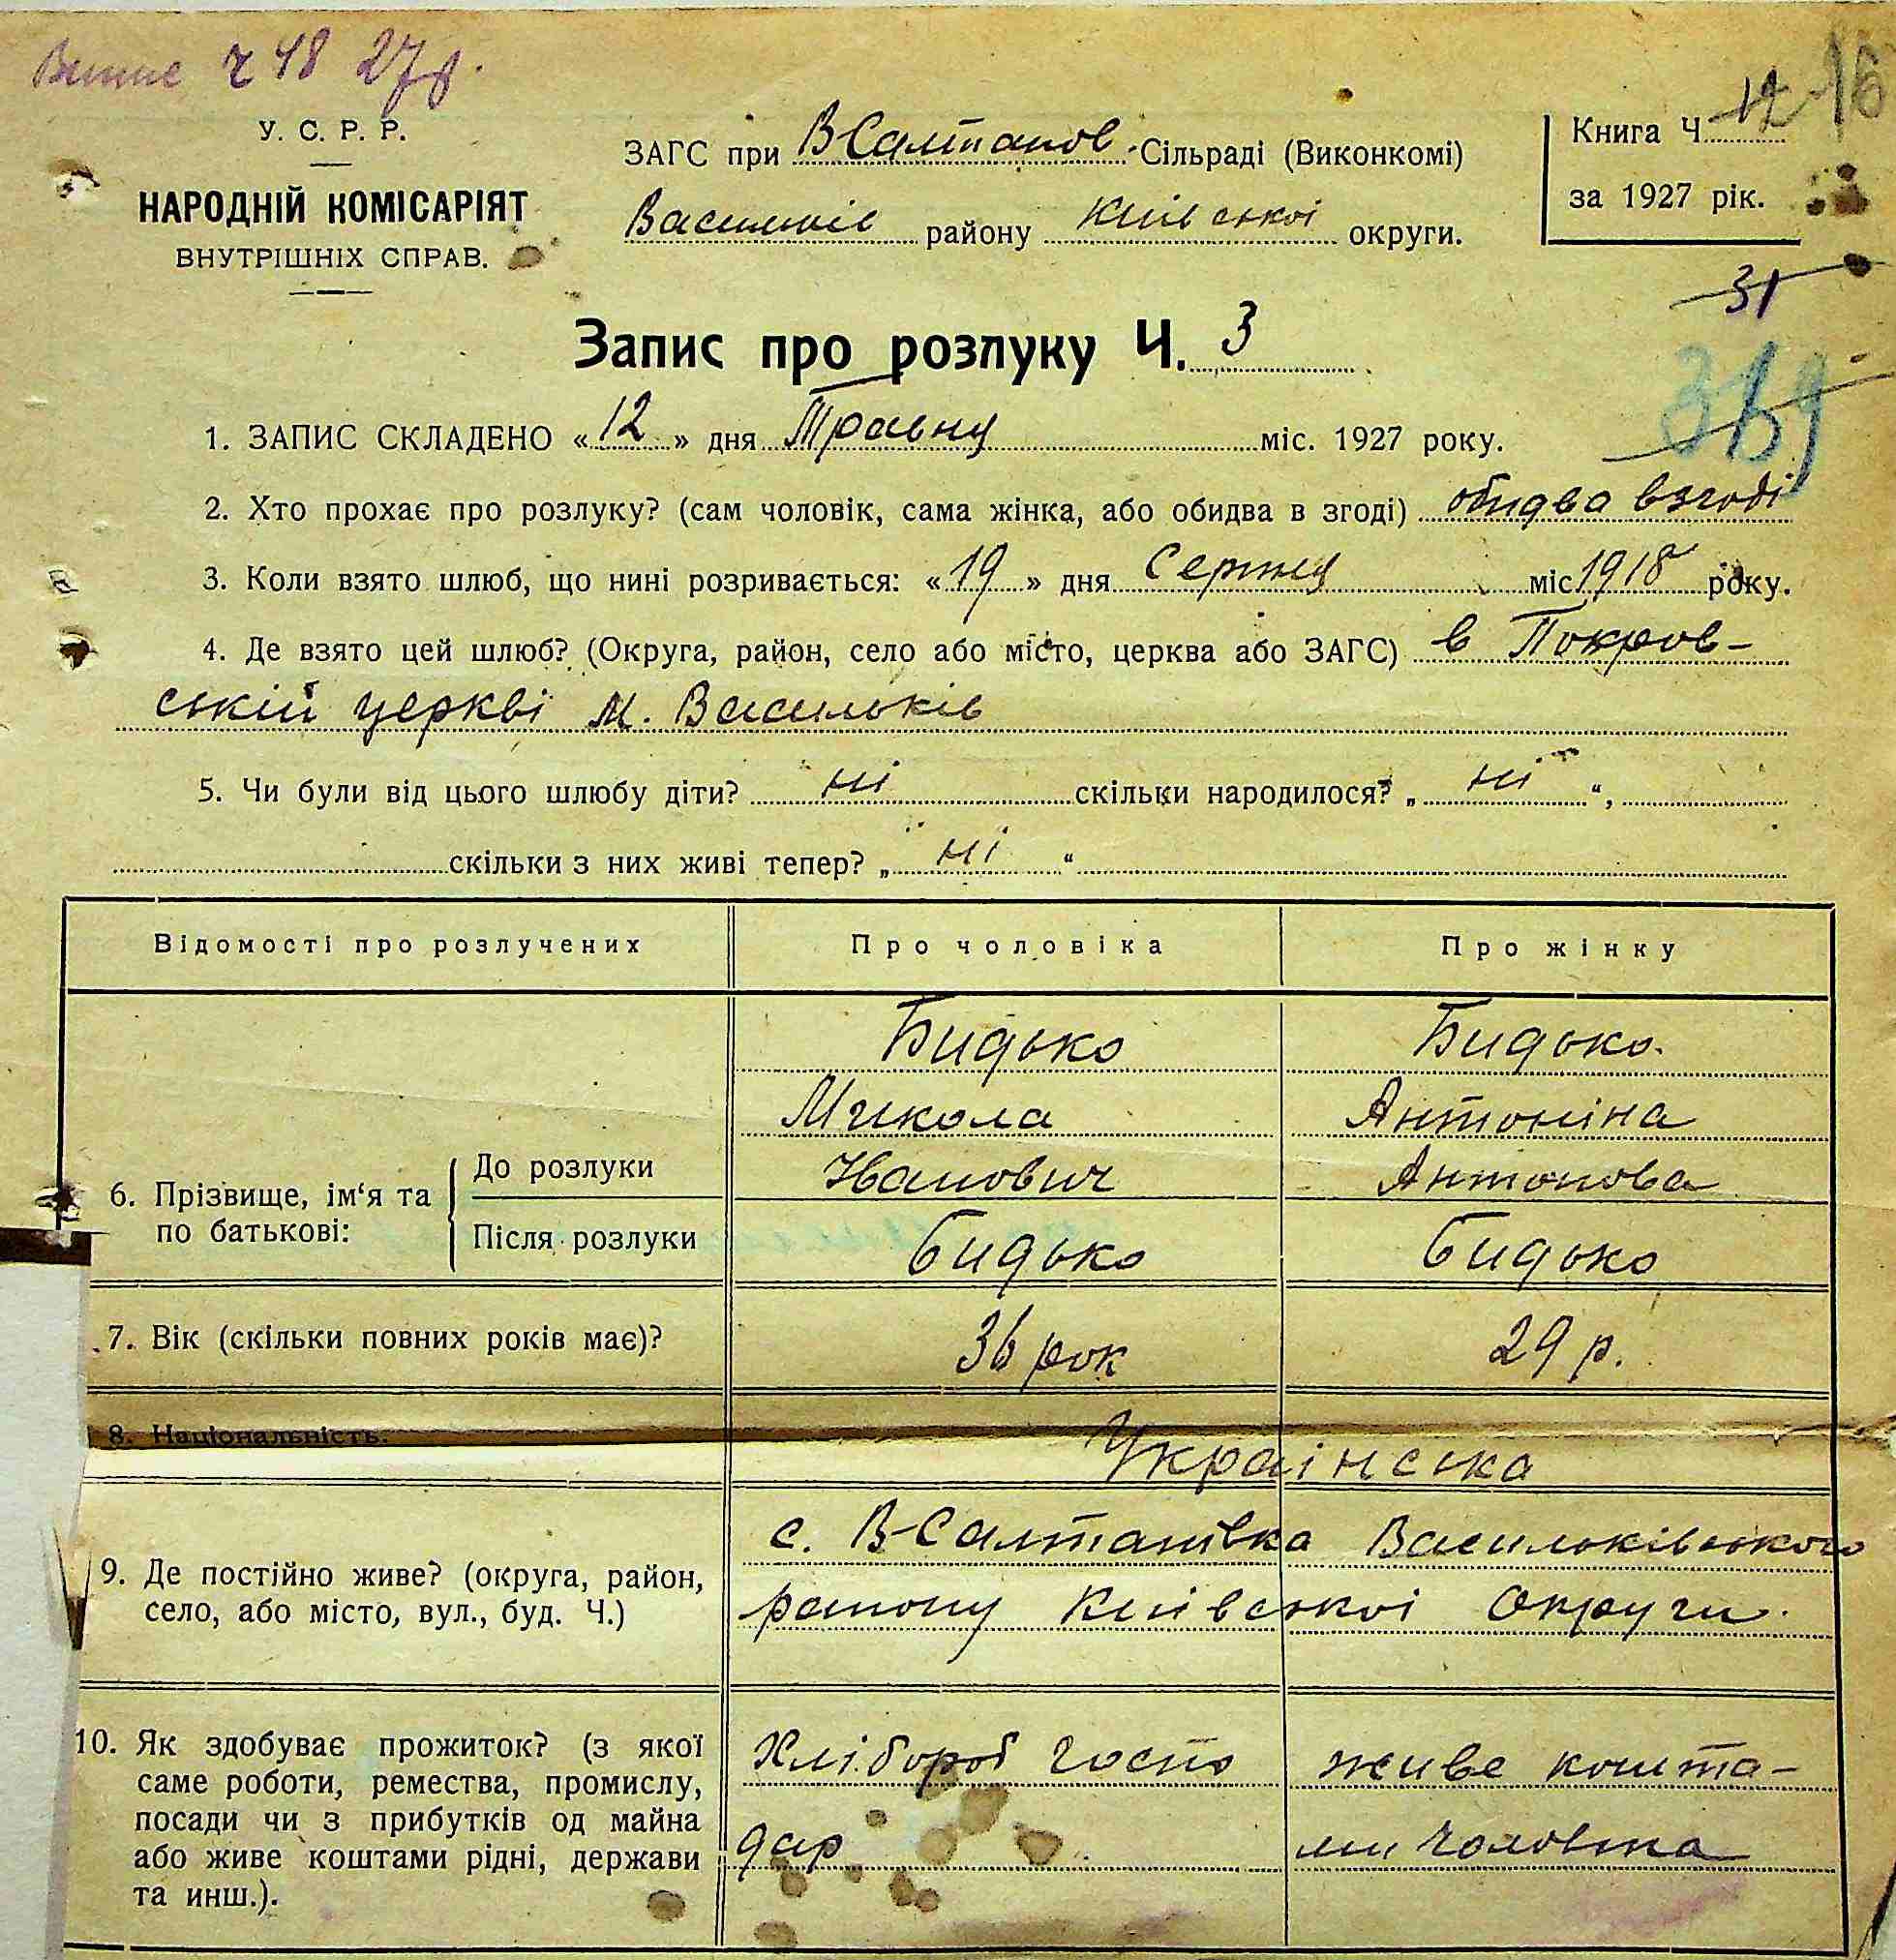 ч 48 27р.
16
У. С. Р. Р.
НАРОДНІЙ КОМІСАРІЯТ
ВНУТРІШНІХ СПРАВ.
ЗАГС при В-Салтанов. Сільраді (Виконкомі)
Васильків району Київської округи.
Книга Ч. 12
за 1927 рік.
31
319
Запис про розлуку Ч. 3
1. ЗАПИС СКЛАДЕНО «12» дня Травня міс. 1927 року.
2. Хто прохає про розлуку? (сам чоловік, сама жінка, або обидва в згоді) обидва взгоді
3. Коли взято шлюб, що нині розривається: «19» дня Серпня міс 1918 року.
4. Де взято цей шлюб? (Округа, район, село або місто, церква або ЗАГС) в Покров-
ській церкві м. Васильків
5. Чи були від цього шлюбу діти? ні скільки народилося? „ ні “,
скільки з них живі тепер? „ ні “
Відомості про розлучених Про чоловіка Про жінку
Бидько Бидько.
Микола Антоніна
6. Прізвище, ім‘я та по батькові:
До розлуки Іванович Антонова
Після розлуки Бидько Бидько
7. Вік (скільки повних років має)? 36 рок 29 р.
8. Національність. Українська
9. Де постійно живе? (округа, район,
село, або місто, вул., буд. Ч.)
с. В-Салтанівка Васильківського
району Київської Округи.
10. Як здобуває прожиток? (з якої
саме роботи, ремества, промислу,
посади чи з прибутків од майна
або живе коштами рідні, держави
та инш.).
Хлібороб госпо
дар
живе кошта-
ми чоловіка